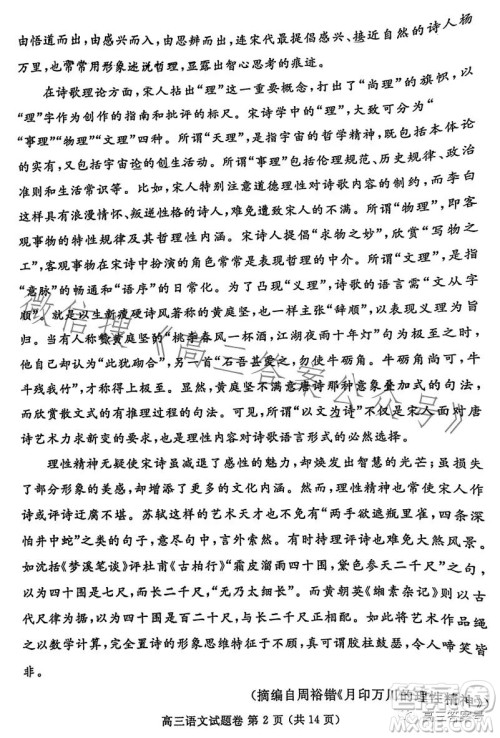 由悟道而出，由感兴而入，因思辨而出。连宋代最提倡感兴、最接近自然的诗人杨
万里，也常常用形象述说哲理，显露出智心思考的痕迹。
在诗歌理论方面，宋人把“理”这一重要概念，打出了“尚理”的旗帜，以
“理”字作为创作的指南和批评的标尺。宋诗学中的“理”，大致可分为“
“事理”“物理”“文理”四种。所谓“天理”，是指宇宙的哲学精神，既包括本体论
的实有，又包括宇宙论的创生。所谓“事理”，包括伦理规范、历史规律、政治
准则和生活常识等。比如，宋人特别注意道德理性对诗歌内容的制约，而李白
这样具有浪漫情怀、叛逆性格的诗人，难免引起宋人的不满。所谓“物理”，指客
观事物的特性规律及其哲理意义。宋诗人提倡“求物之妙”，欣赏“写物之功”，
客观事物在宋诗中扮演的角色常常是表现哲理或知性的道具。所谓“文理”，是指
“意脉”的畅通和“语序”的日常化。相对于唐诗，诗歌的语言需“文从字
顺”，就是以生新瘦硬诗风著称的黄庭坚，也一再主张“辞顺”，以表现义理为主。
当有人称赞黄庭坚的“桃李春风一杯酒，江湖夜雨十年灯”句为极至之时，他
却认为这还只是“此犹砌合”，另一首“石吾甚爱之，勿使牛砺角。牛砺角尚可，牛
斗残我竹”，才称得上极至。可见，黄庭坚不满唐诗意象叠加式的句法，
而欣赏散文式的有推理过程的句法。可见，所谓“以文为诗”不仅是宋人面对唐
诗艺术力求新变的要求，也因为理性内容对诗歌语言形式的必然选择。
理性精神无疑使宋诗虽减退了感性的魅力，却焕发出智慧的光芒；虽损失
了部分形象的美感，却增添了几分思辨的机趣。然而，它也常使宋人作
诗或评诗迂腐不堪。苏轼这样的艺术天才也不免有“两手欲遮瓶里雀，四条深
怕井中蛇”之类的句子，意尽句中，言外索然。有时持理评诗也大煞风景。
如沈括《梦溪笔谈》评杜甫《古柏行》“霜皮溜雨四十围，黛色参天二千尺”，以
为四十围是径七尺，而长二千尺，“无乃太细长”。而黄朝英《缃素杂记》则以古
代尺律为据，认为四十围是百二十尺，与长二千尺正相称。将艺术作品绳
之以数学计算，完置诗的形象思维特征于不顾，可谓胶柱鼓瑟，令人啼笑皆
非。
（摘编自周裕锴《月印万川的理性精神》）
高三语文试题卷 第 2 页（共 14 页）
微信搜《高三答案公众号》
高三答案号